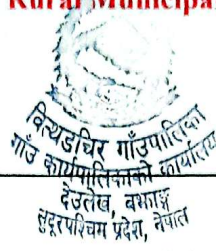 Rural Municipa
बित्थडचिर गाँउपालिका
गाँउ कार्यपालिकाको कार्यालय
देउलेख, बझाङ्ग
सुदूरपश्चिम प्रदेश, नेपाल